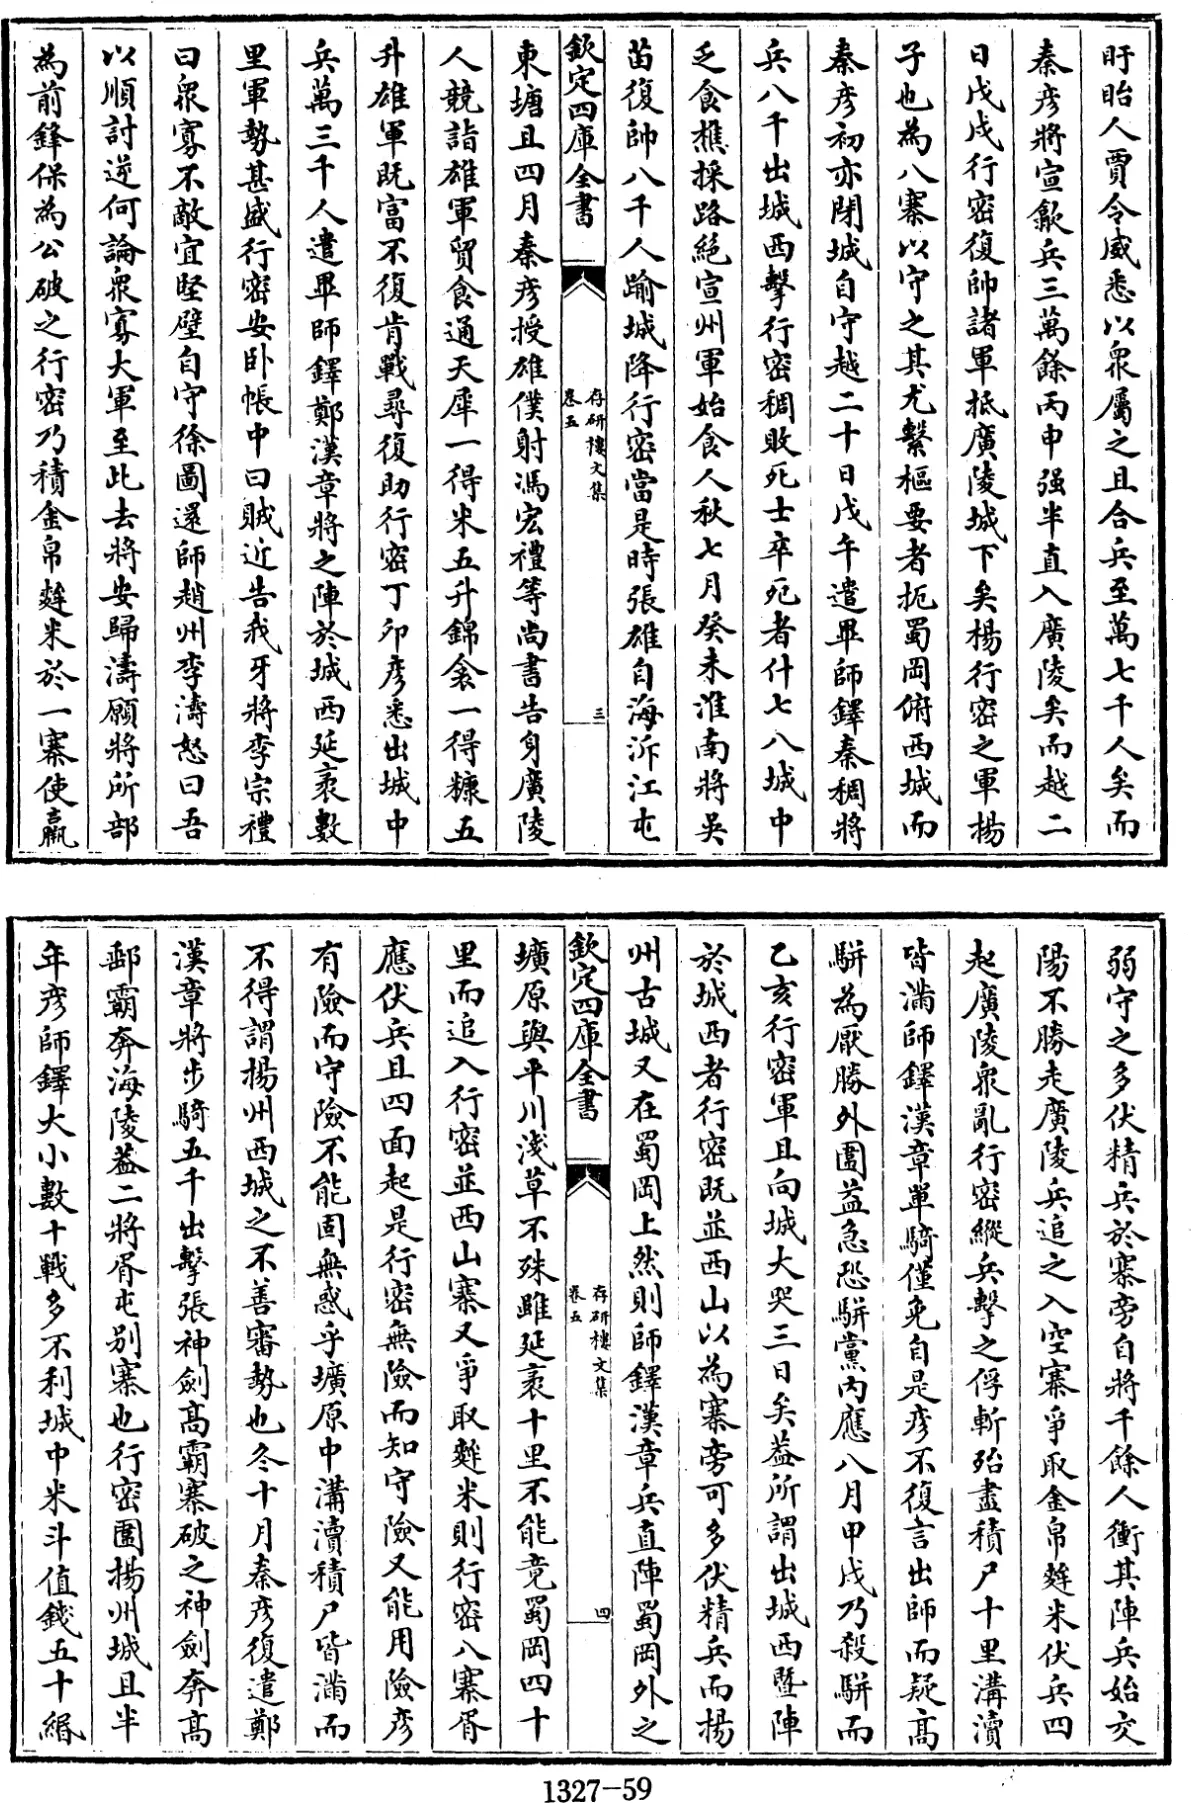 盱眙人賈令威悉以衆屬之且合兵至萬七千人矣而
秦彦將宣歙兵三萬餘丙申强半直入廣陵矣而越二
日戊戌行密復帥諸軍抵廣陵城下矣楊行密之軍揚
子也為八寨以守之其尤繫樞要者扼蜀岡俯西城而
秦彦初亦閉城自守越二十日戊午遣畢師鐸秦稠將
兵八千出城西擊行密稠敗死士卒死者什七八城中
乏食樵採路絶宣州軍始食人秋七月癸未淮南將吳
苗復帥八千人踰城降行密當是時張雄自海泝江屯
欽定四庫全書
存研樓文集
卷五
三
東塘且四月秦彦授雄僕射馮宏禮等尚書告身廣陵
人競詣雄軍貿食通天犀一得米五升錦衾一得糠五
升雄軍既富不復肯戰尋復助行密丁卯彦悉出城中
兵萬三千人遣畢師鐸鄭漢章將之陣於城西延袤數
里軍勢甚盛行密安卧帳中曰賊近告我牙將李宗禮
曰衆寡不敵宜堅壁自守徐圖還師趙州李濤怒曰吾
以順討逆何論衆寡大軍至此去將安歸濤願將所部
為前鋒保為公破之行密乃積金帛麰米於一寨使羸
弱守之多伏精兵於寨旁自將千餘人衝其陣兵始交
陽不勝走廣陵兵追之入空寨爭取金帛麰米伏兵四
起廣陵衆亂行密縱兵擊之俘斬殆盡積尸十里溝瀆
皆滿師鐸漢章單騎僅免自是彦不復言出師而疑高
駢為厭勝外圍益急恐駢黨内應八月甲戌乃殺駢而
乙亥行密軍且向城大哭三日矣葢所謂出城西曁陣
於城西者行密既並西山以為寨旁可多伏精兵而揚
州古城又在蜀岡上然則師鐸漢章兵直陣蜀岡外之
欽定四庫全書
存研樓文集
卷五
四
壙原與平川淺草不殊雖延袤十里不能竟蜀岡四十
里而追入行密並西山寨又爭取麰米則行密八寨胥
應伏兵且四面起是行密無險而知守險又能用險彦
有險而守險不能固無惑乎壙原中溝瀆積尸皆滿而
不得謂揚州西城之不善審勢也冬十月秦彦復遣鄭
漢章將步騎五千出擊張神劍高霸寨破之神劍奔高
郵霸奔海陵葢二將胥屯别寨也行密圍揚州城且半
年彦師鐸大小數十戰多不利城中米斗值錢五十緡
1327—59